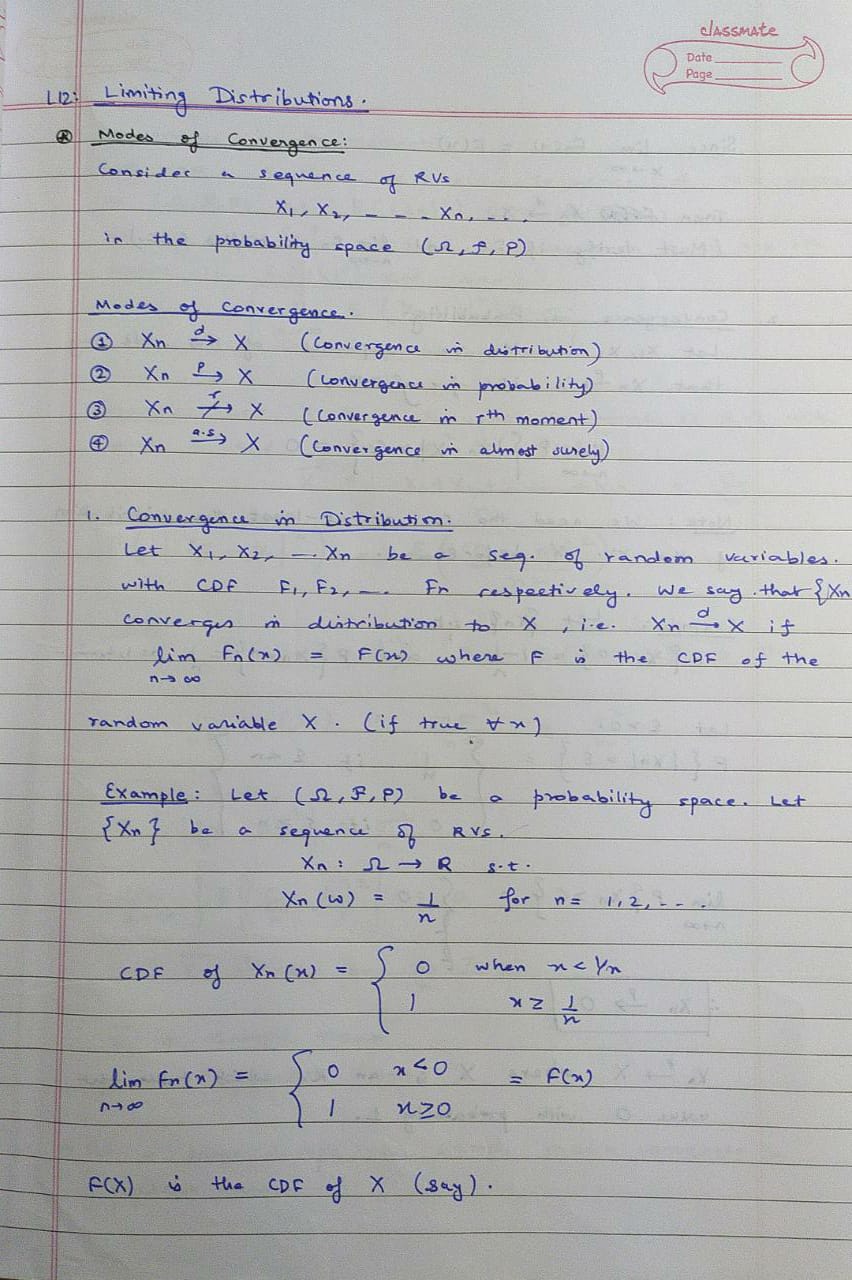 classmate
Date
Page
L12: Limiting Distributions.
⊛ Modes of Convergence:
Consider a sequence of RVs
X₁, X₂, – – – Xn, – . .
in the probability space (Ω, F, P)
Modes of Convergence.
① Xn →d X (Convergence in distribution)
② Xn →P X (Convergence in probability)
③ Xn →r X (Convergence in rth moment)
④ Xn →a.s X (Convergence in almost surely)
1. Convergence in Distribution.
Let X₁, X₂, –. Xn be a seq. of random variables.
with CDF F₁, F₂, –. Fn respectively. We say that {Xn
converges in distribution to X, i.e. Xn →d X if
lim Fn(x) = F(x) where F is the CDF of the
n→∞
random variable X. (if true ∀x)
Example: Let (Ω, F, P) be a probability space. Let
{Xn} be a sequence of RVs.
Xn : Ω → R s.t.
Xn(ω) = 1/n for n = 1, 2, - - .
CDF of Xn(x) = { 0 when x < 1/n
1 x ≥ 1/n
lim Fn(x) = { 0 x<0 = F(x)
n→∞ 1 x≥0
F(X) is the CDF of X (say).